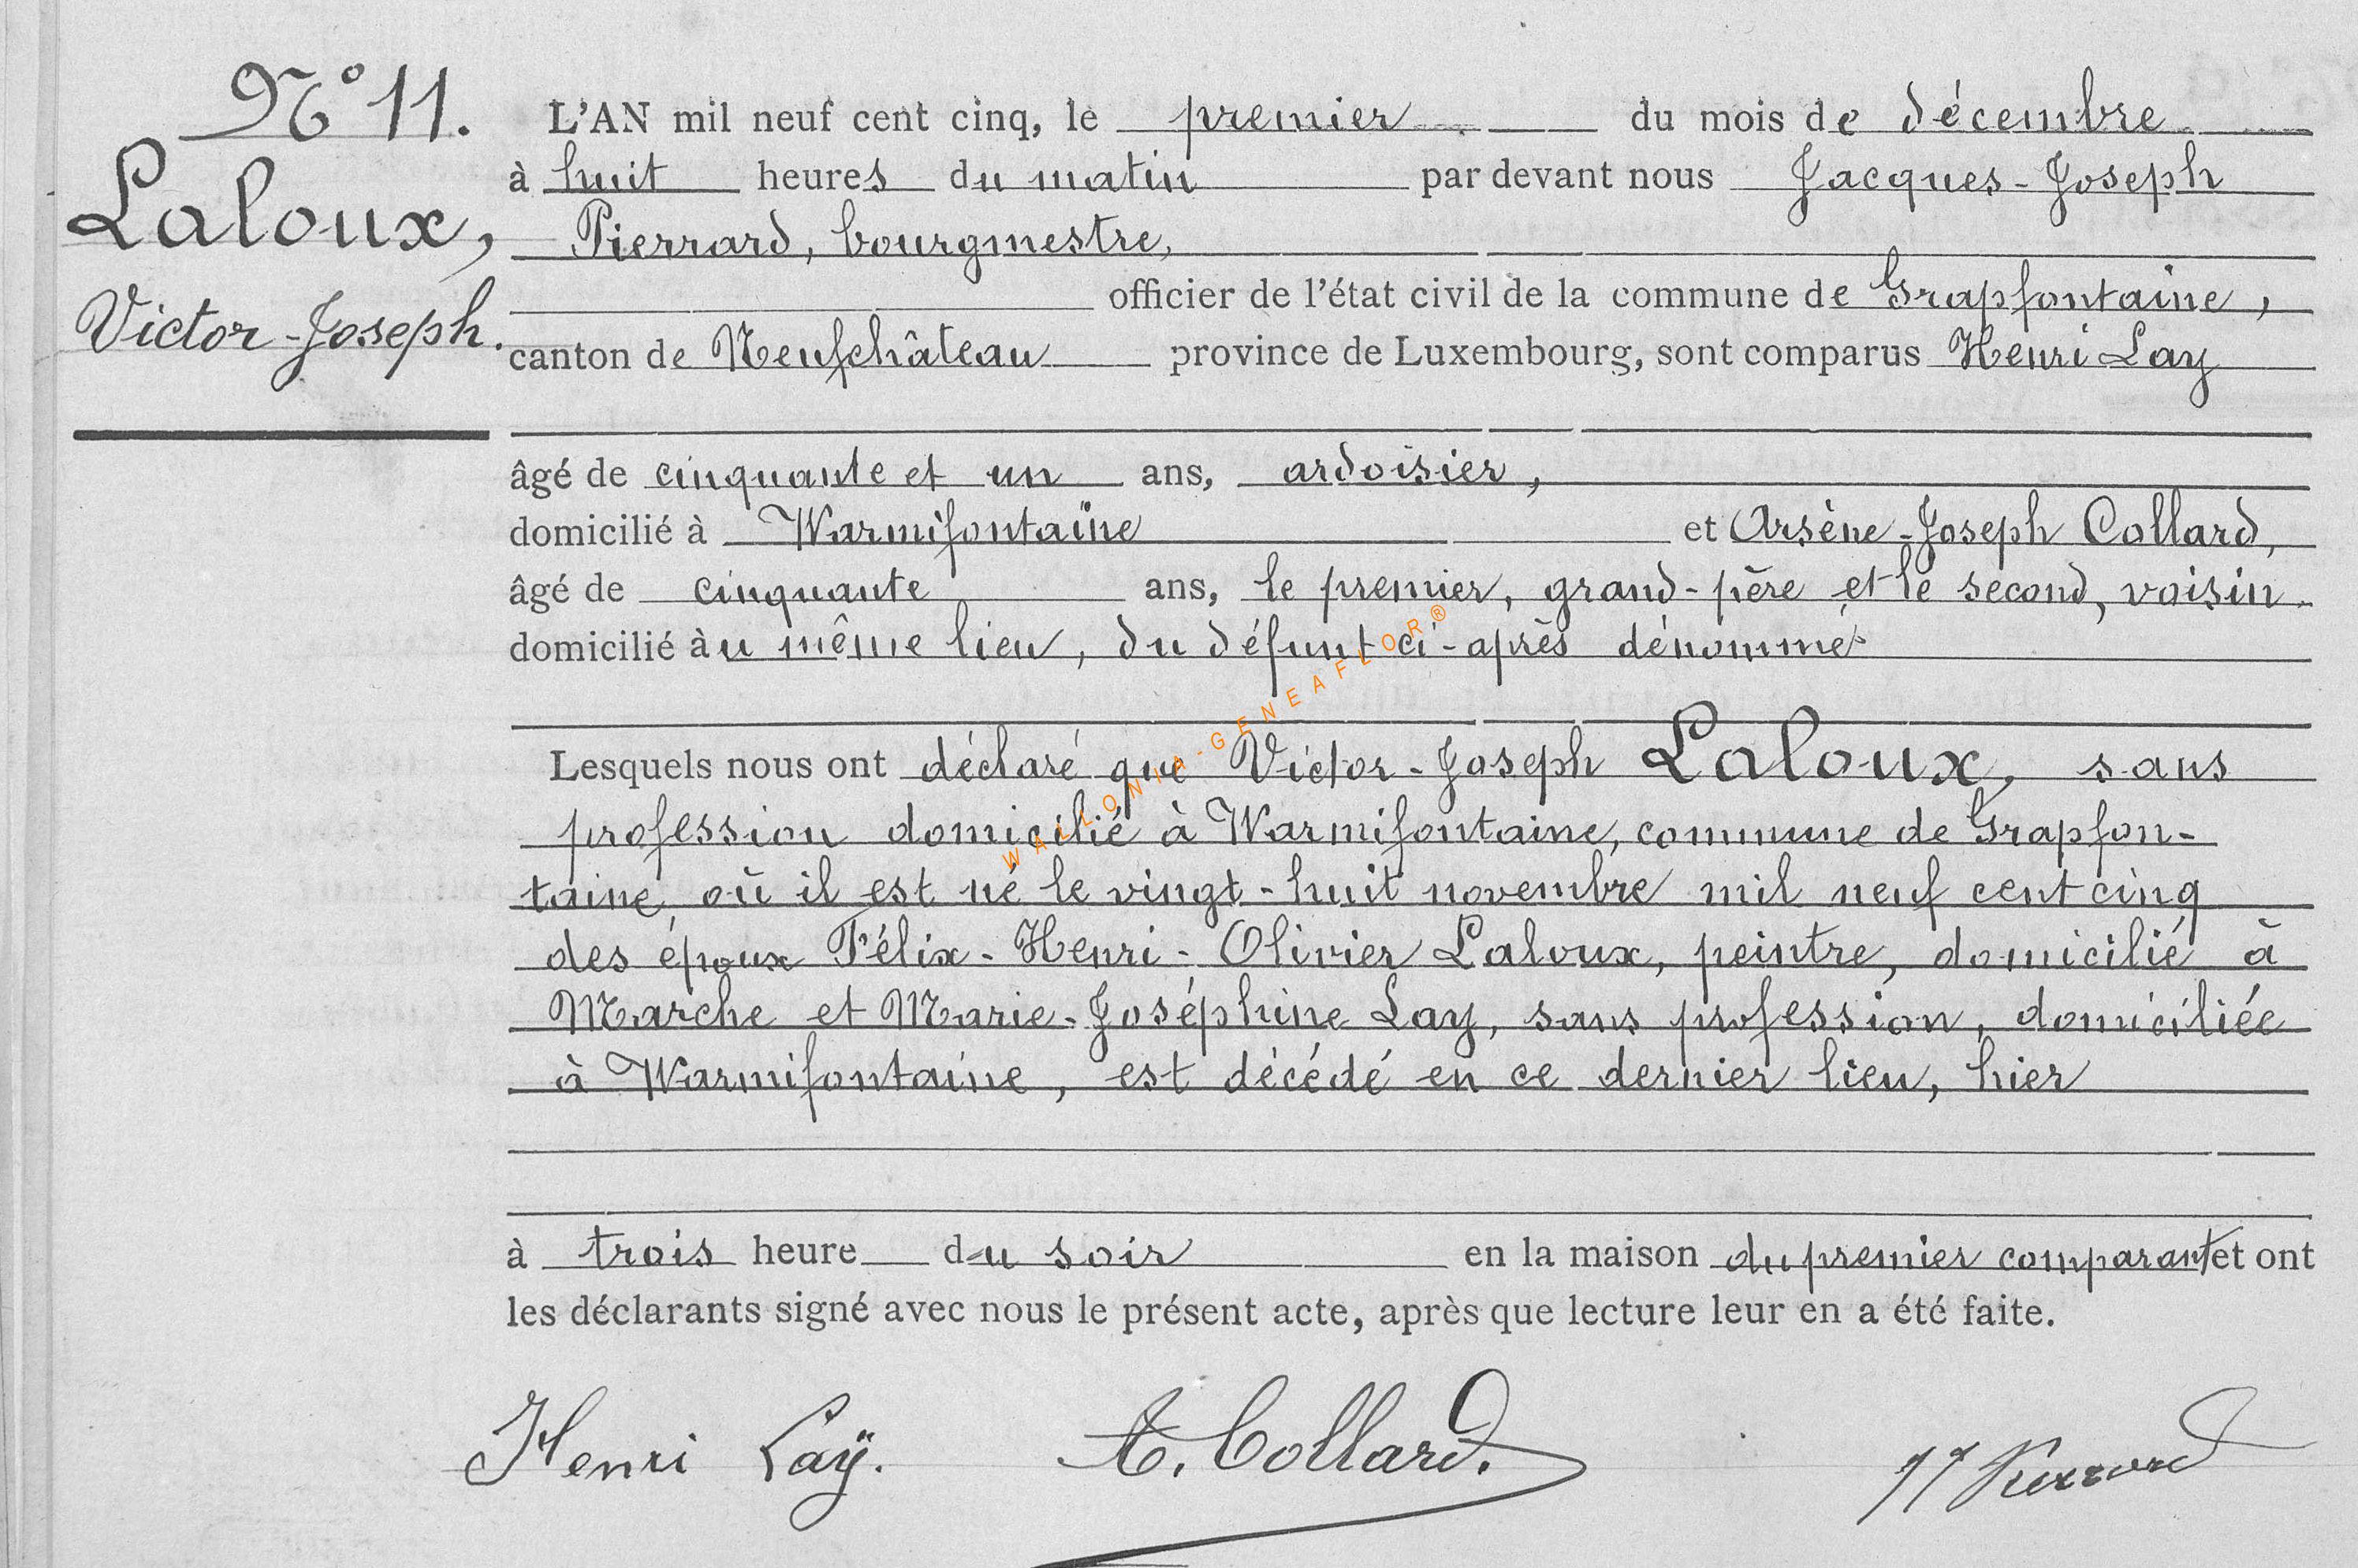 N° 11.
Laloux,
Victor-Joseph.
L'AN mil neuf cent cinq, le premier du mois de décembre
à huit heures du matin par devant nous Jacques-Joseph
Pierrard, bourgmestre,
officier de l'état civil de la commune de Grapfontaine,
canton de Neufchâteau province de Luxembourg, sont comparus Henri Lay
âgé de cinquante et un ans, ardoisier,
domicilié à Warmifontaine et Arsène-Joseph Collard,
âgé de cinquante ans, le premier, grand-père et le second, voisin
domicilié àu même lieu, du défunt ci-après dénommé
Lesquels nous ont déclaré que Victor-Joseph Laloux, sans
profession domicilié à Warmifontaine, commune de Grapfon-
taine, où il est né le vingt-huit novembre mil neuf cent cinq
des époux Félix-Henri-Olivier Laloux, peintre, domicilié à
Marche et Marie-Joséphine Lay, sans profession, domiciliée
à Warmifontaine, est décédé en ce dernier lieu, hier
à trois heure du soir en la maison du premier comparant et ont
les déclarants signé avec nous le présent acte, après que lecture leur en a été faite.
Henri Laÿ. A. Collard. JJ Pierrard
WALLONIA-GENEAFLOR®